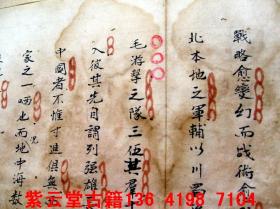 戰略愈變幻而战術愈
北本地之軍輔以川
毛游擊之隊三伍其
入彼其先目謂列强雄
中國者不惟寸進
家之一哂也而地中海數
况
紫云堂古籍136 4198 7104